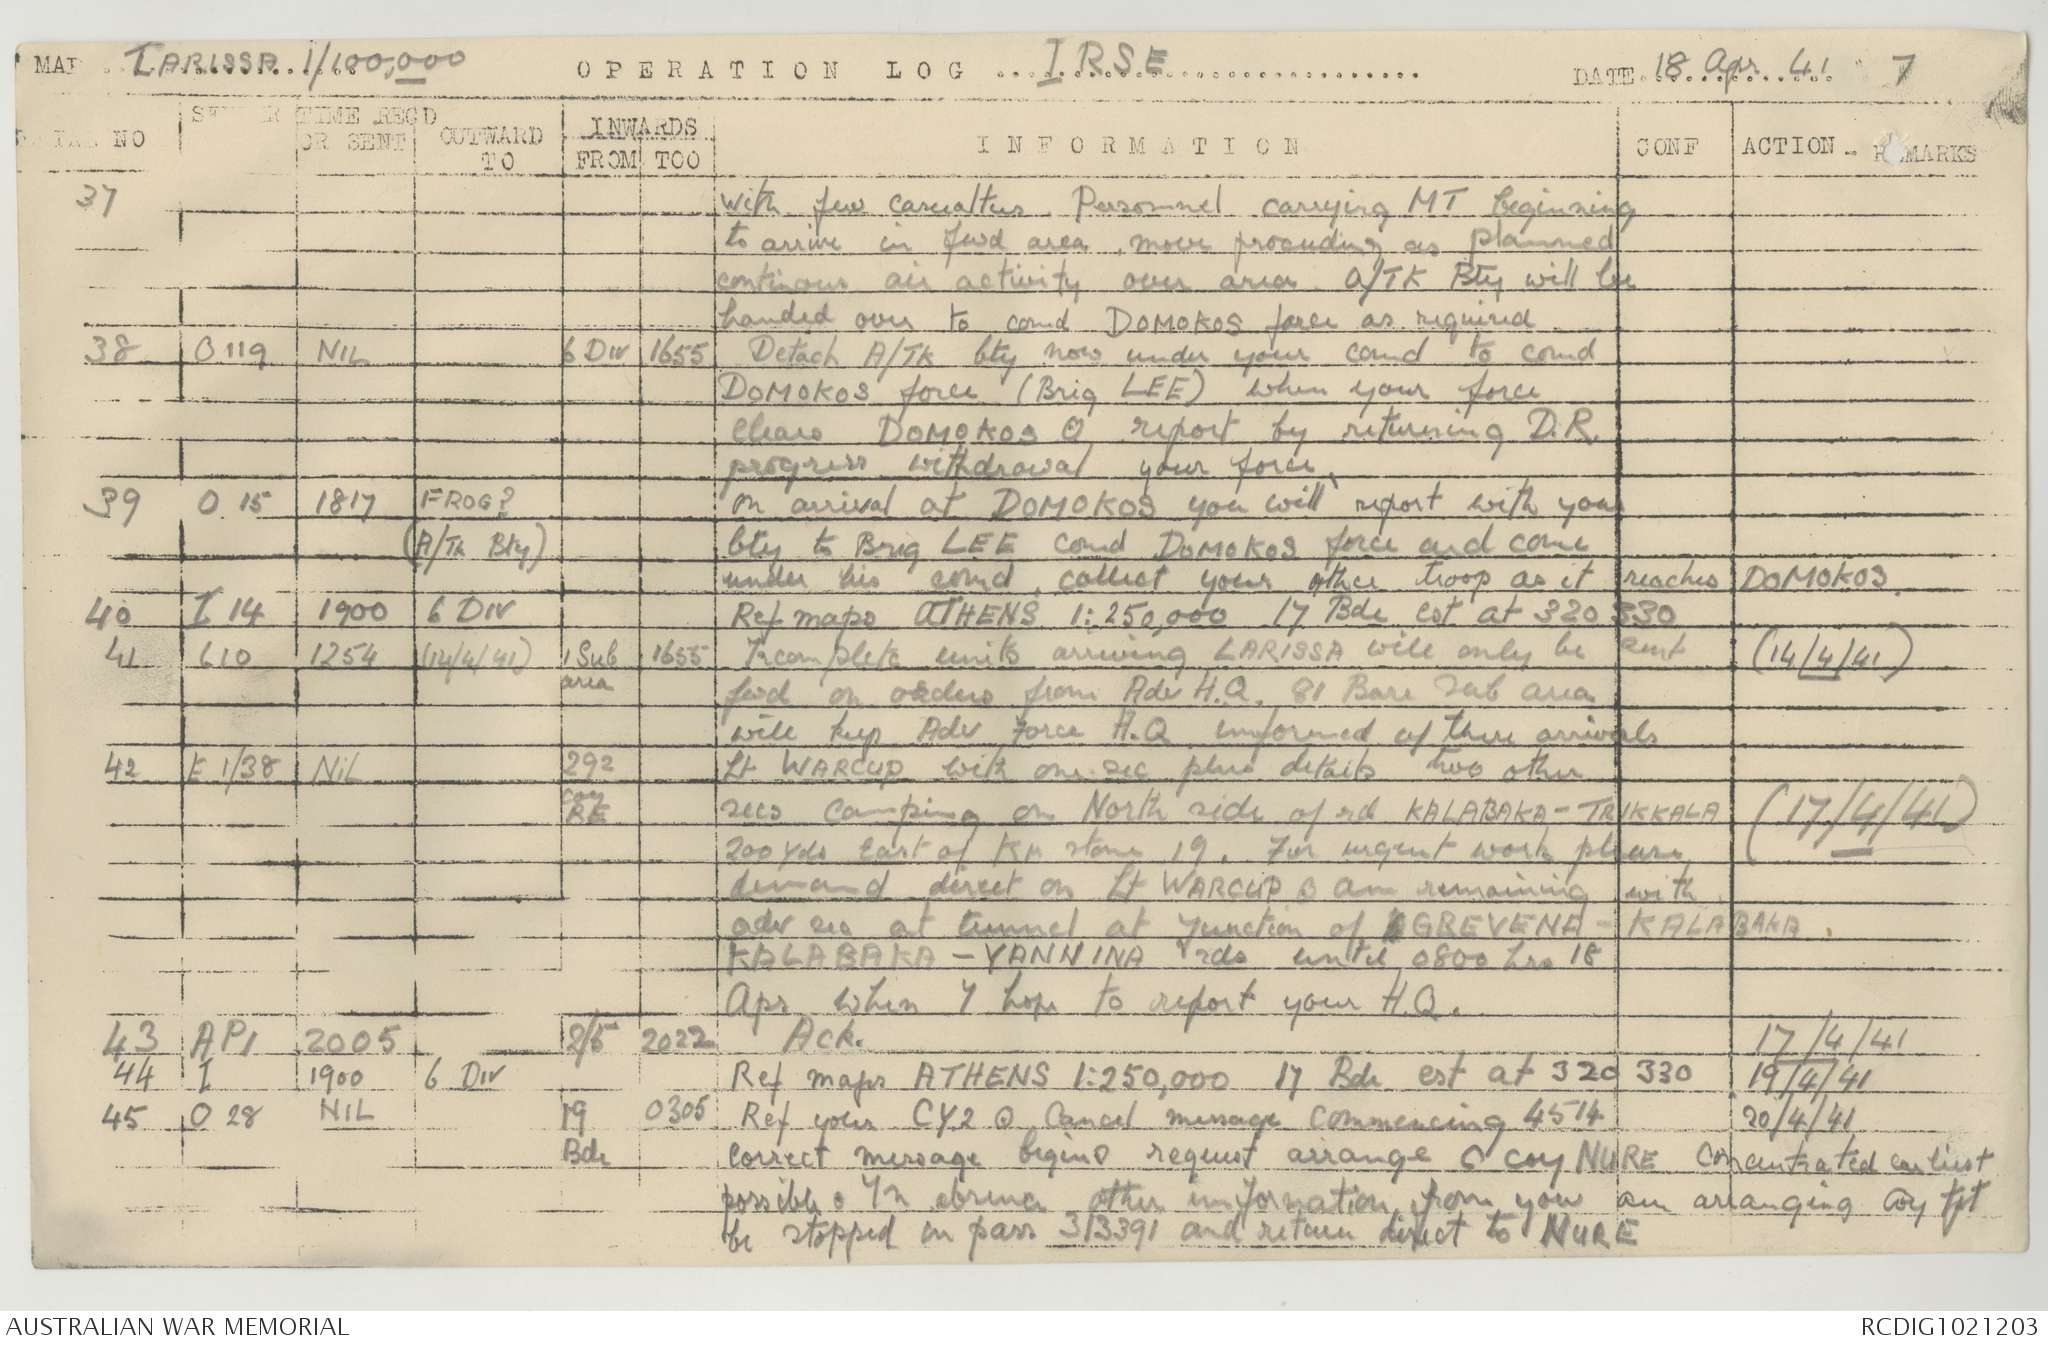 MAP LARISSA 1/100,000 OPERATION LOG I RSE DATE 18 Apr 41 7
SERIAL NO TIME RECD OR SENT OUTWARD TO INWARDS FROM TOO INFORMATION CONF ACTION - REMARKS
37 with few casualties. Personnel carrying MT beginning
to arrive in fwd area, move proceeding as planned
continous air activity over area. A/TK Bty will be
handed over to comd DOMOKOS force as required
38 O 119 NIL 6 DIV 1655 Detach A/TK bty now under your comd to comd
DOMOKOS force (Brig LEE) when your force
clears DOMOKOS O report by returning D.R.
progress withdrawal your force.
39 O 15 1817 FROG? on arrival at DOMOKOS you will report with your
(A/TK Bty) bty to Brig LEE comd DOMOKOS force and come
under his comd, collect your other troop as it reaches DOMOKOS.
40 I 14 1900 6 DIV Ref maps ATHENS 1:250,000 17 Bde est at 320 330
41 L10 1254 (14/4/41) 1 Sub area 1655 Incomplete units arriving LARISSA will only be sent (14/4/41)
fwd on orders from Adv H.Q. 81 Base Sub area
will keep Adv Force H.Q informed of there arrivals
42 E 1/38 NIL 292 Lt WARCUP with one sec plus details two other
coy RE secs camping on North side of rd KALABAKA - TRIKKALA (17/4/41)
200 yds East of KM stone 19. For urgent work please
demand direct on Lt WARCUP O am remaining with
adv sec at tunnel at junction of GREVENA - KALABAKA
KALABAKA - YANNINA rds until 0800 hrs 18
Apr when I hope to report your H.Q.
43 AP1 2005 2/5 2022 Ack. 17/4/41
44 I 1900 6 DIV Ref maps ATHENS 1:250,000 17 Bde est at 320 330 19/4/41
45 O 28 NIL 19 Bde 0305 Ref your CY2 O Cancel message commencing 4514 20/4/41
correct message begins request arrange C coy NURE concentrated earliest
possible o In absence other information from you am arranging coy tpt
be stopped in pass 313391 and return direct to NURE
AUSTRALIAN WAR MEMORIAL RCDIG1021203